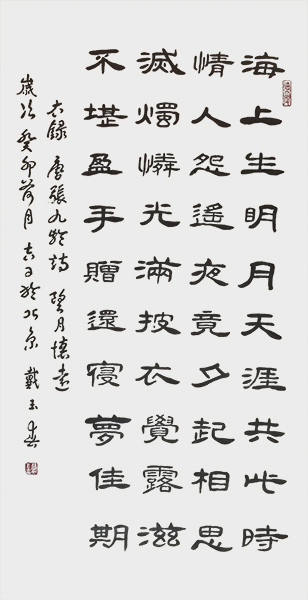 海上生明月天涯共此時
情人怨遙夜竟夕起相思
滅燭憐光滿披衣覺露滋
不堪盈手贈還寢夢佳期
右錄唐張九齡詩望月懷遠
歲次癸卯荷月吉日於北京戴玉